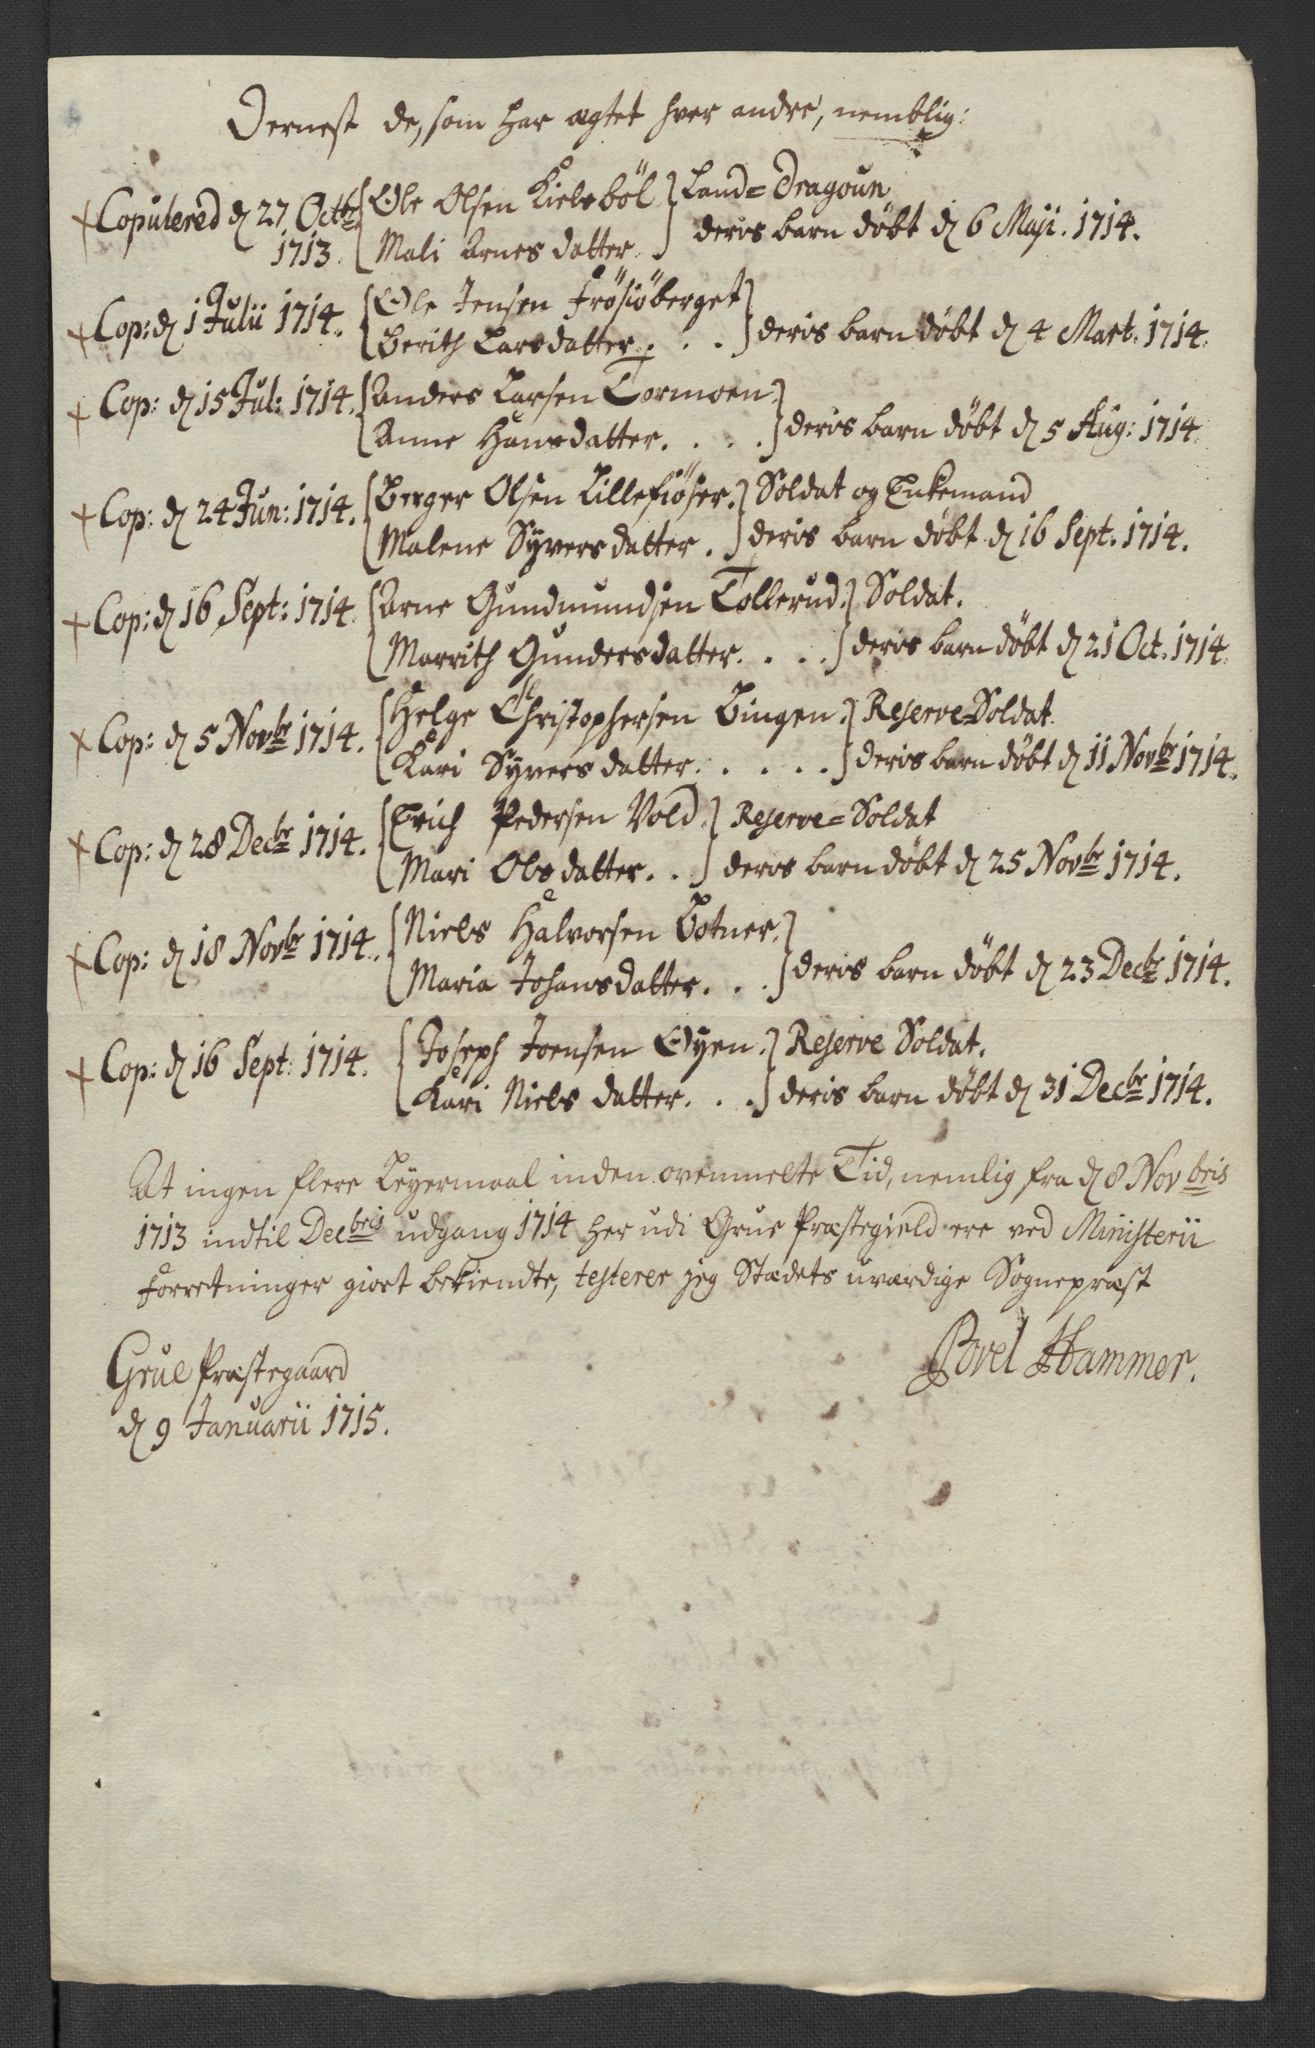 Dernest de, som har ægtet hver andre, nemblig:
+ Copulered d 27 Octbr { Ole Olsen Kielsböl } Land=Dragoun
1713. { Mali Arnes datter. } deris barn döbt d 6 Maji. 1714.
+ Cop: d 1 Julii 1714. { Ole Jensen Frösiöberget
{ Berith Larsdatter . . . } deris barn döbt d 4 Mart. 1714.
+ Cop: d 15 Jul: 1714. { Anders Larsen Tormoen. }
{ Anne Hansdatter. . . . } deris barn döbt d 5 Aug: 1714.
+ Cop: d 24 Jun: 1714. { Berger Olsen Lillefiöser. } Soldat og Enkemand
{ Malene Syvers datter. } deris barn döbt d 16 Sept. 1714.
+ Cop: d 16 Sept: 1714. { Arne Gundmundsen Tollerud. } Soldat.
{ Marrith Gundersdatter. . . . } deris barn döbt d 21 Oct. 1714.
+ Cop: d 5 Novbr 1714. { Helge Christophersen Bingen. } Reserve=Soldat.
{ Kari Syvers datter. . . . . } deris barn döbt d 11 Novbr 1714.
+ Cop: d 28 Decbr 1714. { Erich Pedersen Vold. } Reserve=Soldat
{ Mari Olsdatter. . . } deris barn döbt d 25 Novbr 1714.
+ Cop: d 18 Novbr 1714. { Niels Halvorsen Botner. }
{ Maria Johansdatter. . . } deris barn döbt d 23 Decbr 1714.
+ Cop: d 16 Sept: 1714. { Joseph Joensen Öyen. } Reserve Soldat.
{ Kari Niels datter. . . } deris barn döbt d 31 Decbr 1714.
At ingen flere Leyermaal inden ovenmelte Tid, nemlig fra d 8 Novbris
1713 indtil Decbris udgang 1714 her udi Grue Præstegield ere ved Ministerii
Forretninger giort bekiendte, testerer jeg Stædets uværdige Sognepræst
Grue Præstegaard
Povel Hammer.
d 9 Januarii 1715.